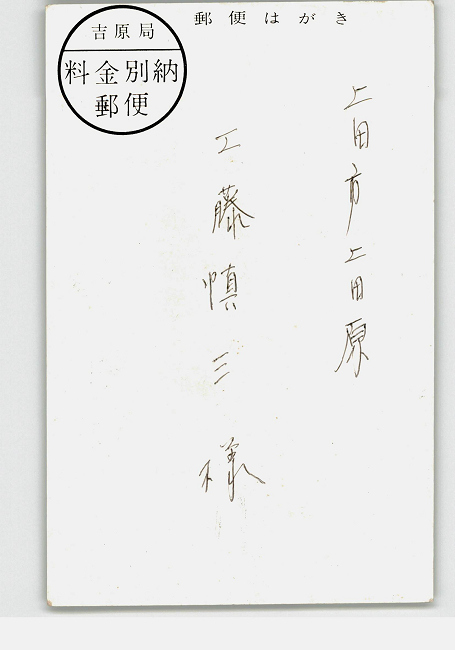 郵便はがき
吉原局
料金別納
郵便
上田市上田原
工藤慎三様